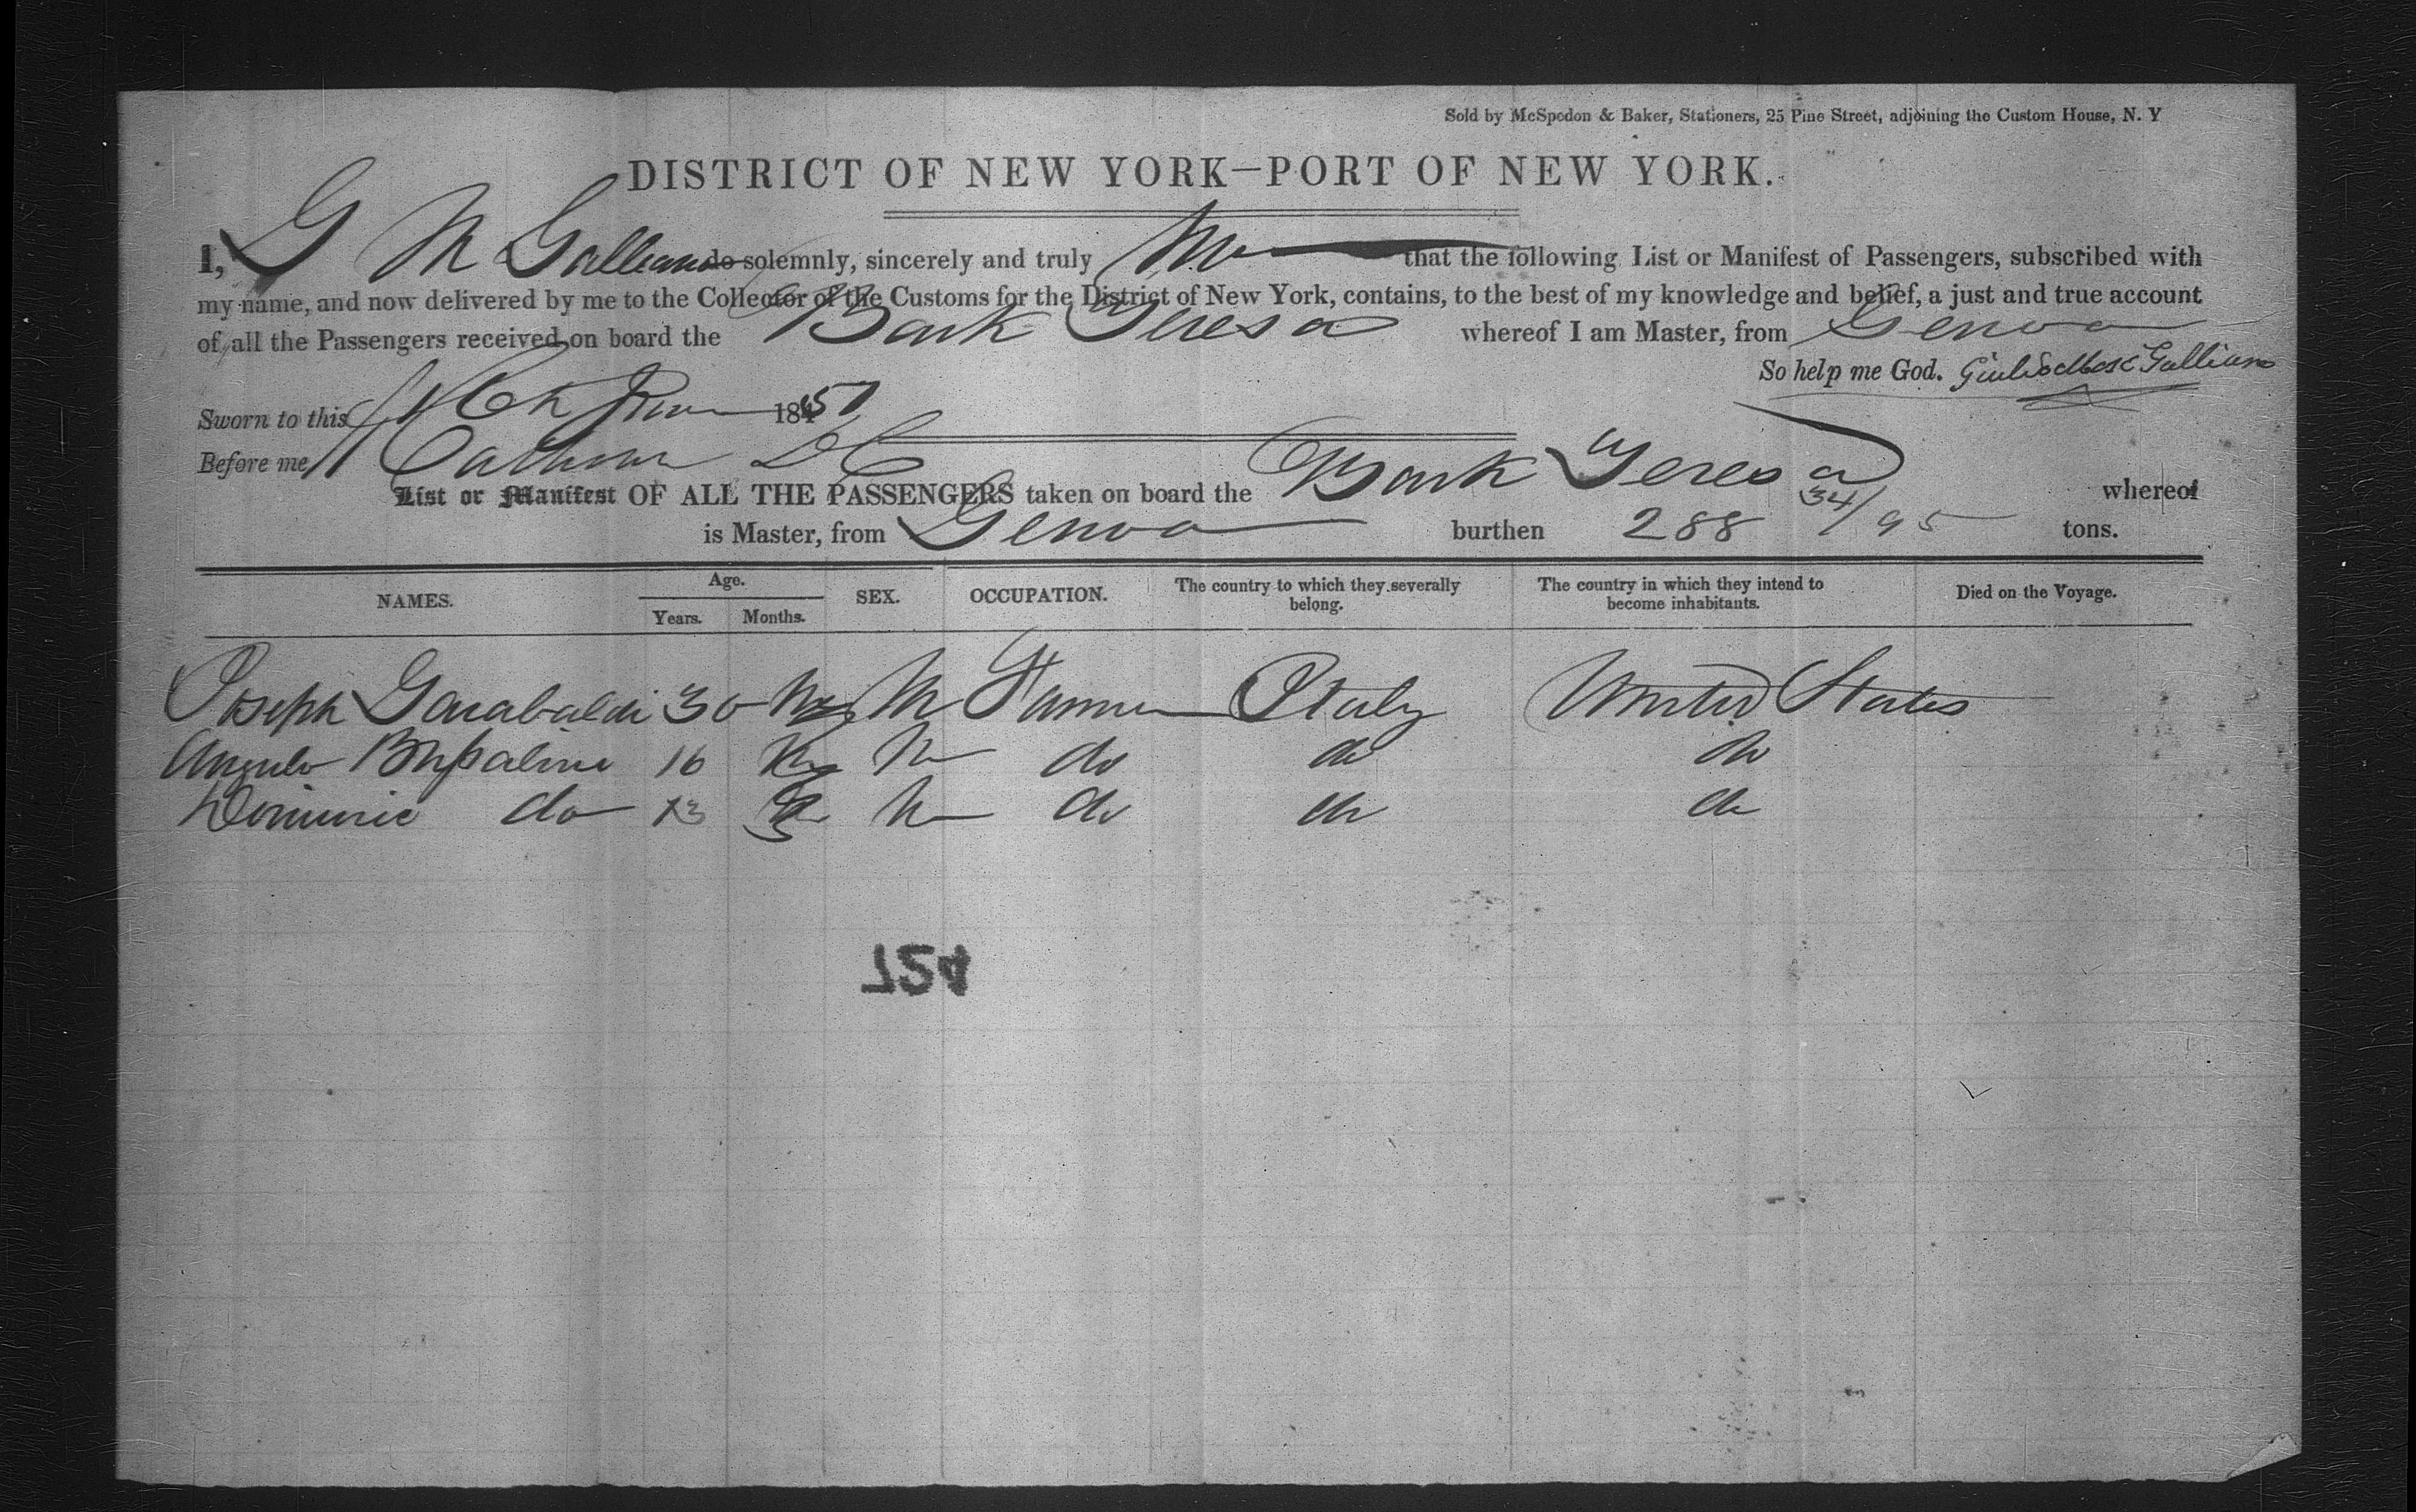 Sold by McSpedon & Baker, Stationers, 25 Pine Street, adjoining the Custom House, N. Y
DISTRICT OF NEW YORK—PORT OF NEW YORK.
I, G M Galleano do solemnly, sincerely and truly that the following List or Manifest of Passengers, subscribed with
my name, and now delivered by me to the Collector of the Customs for the District of New York, contains, to the best of my knowledge and belief, a just and true account
of all the Passengers received on board the Bark Teresa whereof I am Master, from Genoa
So help me God. Galliano
Sworn to this June 1851
Before me Calhoun DC
List or Manifest OF ALL THE PASSENGERS taken on board the Bark Teresa whereof
is Master, from Genoa burthen 288 34/95 tons.
NAMES. Age. Years. Months. SEX. OCCUPATION. The country to which they severally belong. The country in which they intend to become inhabitants. Died on the Voyage.
Joseph Garabaldi 30 M Farmer Italy United States
Angelo 16 M do do do
Dominic do 13 M do do do
724